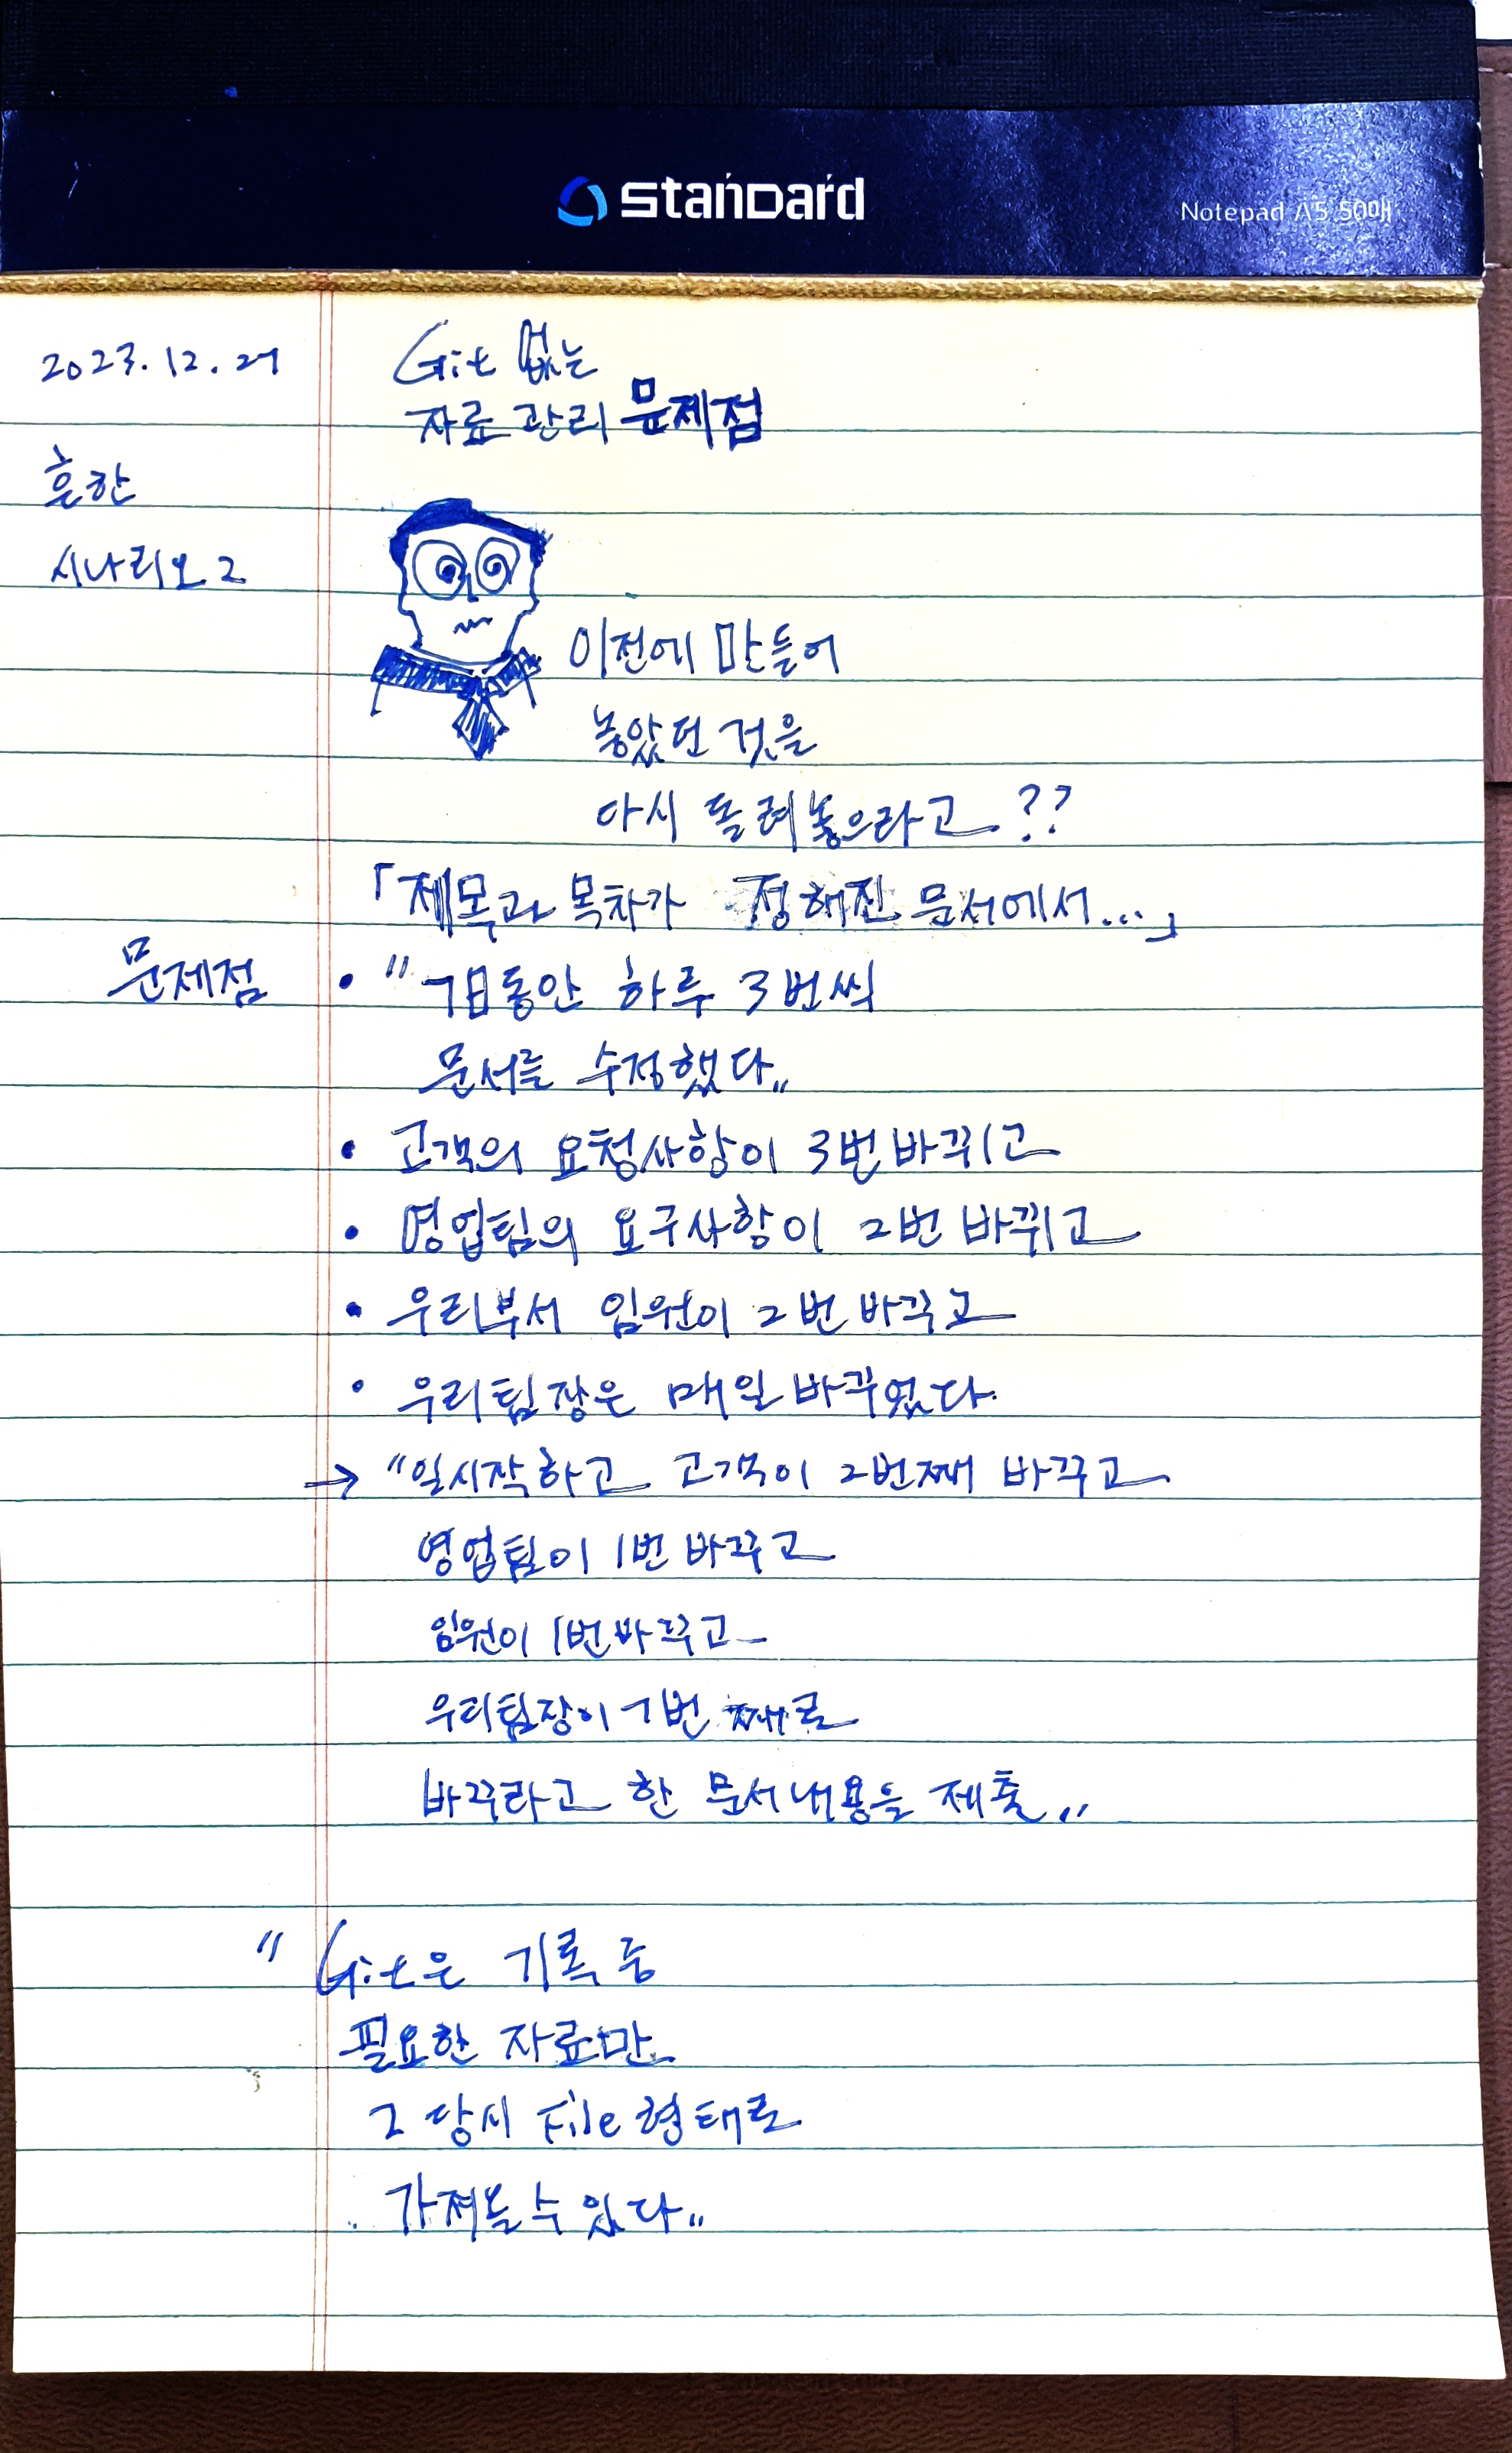 standard
Notepad A5 50매
2023.12.27
Git 없는
자료 관리 문제점
흔한
시나리오 2
이전에 만들어
놓았던 것을
다시 돌려놓으라고 ??
「제목과 목차가 정해진 문서에서...」
문제점
• "7日동안 하루 3번씩
문서를 수정했다"
• 고객의 요청사항이 3번 바뀌고
• 영업팀의 요구사항이 2번 바뀌고
• 우리부서 임원이 2번 바꾸고
• 우리팀장은 매일 바꾸었다.
→ "일시작하고 고객이 2번째 바꾸고
영업팀이 1번 바꾸고
임원이 1번 바꾸고
우리팀장이 7번째로
바꾸라고 한 문서내용을 제출"
"Git은 기록 중
필요한 자료만
그 당시 File 형태로
가져올 수 있다"